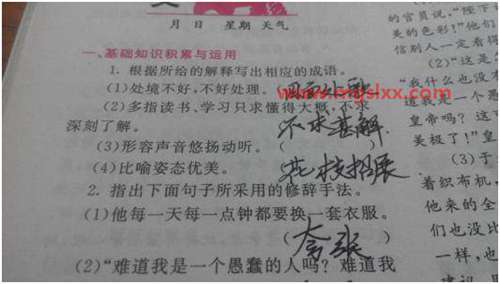 月 日 星期 天气
一、基础知识积累与运用
1. 根据所给的解释写出相应的成语。
(1)处境不好,不好处理。
(2)多指读书、学习只求懂得大概,不求
深刻了解。
不求甚解
(3)形容声音悠扬动听。(
(4)比喻姿态优美。
花枝招展
2. 指出下面句子所采用的修辞手法。
(1)他每一天每一点钟都要换一套衣服。
(夸张
(2)“难道我是一个愚蠢的人吗?难道我
的官员说,“陛下
美的色彩!”他们
信别人一定看得
(2)“这是
“我什么也没
道我是一个愚
皇帝吗?这
美极了!”皇
(3)于
着织布机,
他来的全
们也没比
一样,也
www.mgslxx.com